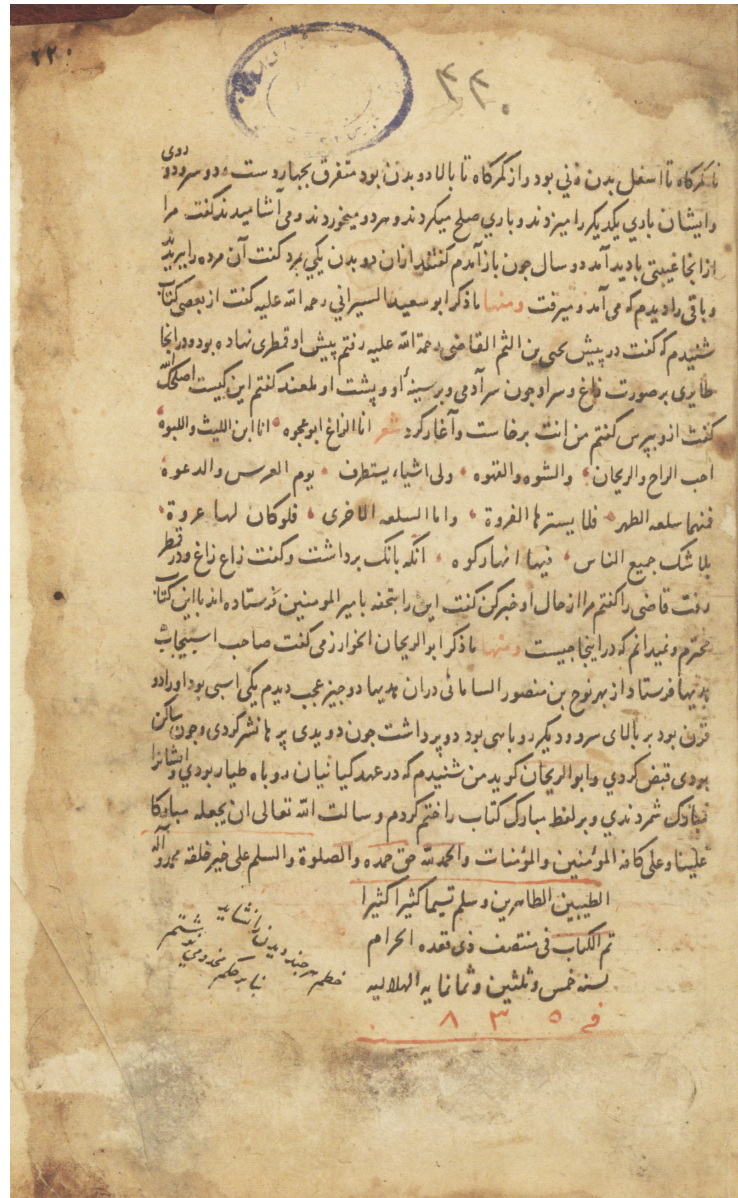 ۲۲۰
۲۲۰
تا کمرکاه تا اسفل بدن زنی بود و از کمرکاه تا بالا دو بدن بود متفرق بجهار دست و دو سر و دو روی
و ایشان باری یکدیکر را میزدند و باری صلح میکردند و هر دو میخوردند و می آشامیدند کفت مرا
از انجا غیبتی بادید آمد دو سال جون باز آمدم کفتند از ان دو بدن یکی بمرد کفت آن مرده را ببریدند
و باقی را دیدم که می آمد و میرفت ومنها ما ذکر ابو سعید السیرافی رحمه الله علیه کفت از بعضی کتاب
شنیدم که کفت در پیش یحیی بن اکثم القاضی رحمة الله علیه رفتم پیش او قمطری نهاده بود و در انجا
طایری بر صورت زاغ و سر او جون سر آدمی و بر سینهٔ او و پشت او لمعند کفتم این کیست اصلحک الله
کفت ازو بپرس کفتم من انت برخاست و آغاز کرد شعر انا الزاغ ابو عجوه انا ابن اللیث واللبوه
احب الراح والریحان والنشوه والقهوه ولی اشیاء یستطرف یوم العرس والدعوة
فمنها سلعه الظهر فلا یسترها الفروة واما السلعه الاخری فلو کان لها عروة
بلا شک جمیع الناس فیها انها رکوه انکه بانک برداشت و کفت زاغ زاغ و در قمطر
رفت قاضی را کفتم مرا از حال او خبر کن کفت این را بتحفه بامیر المومنین فرستاده اند با این کتاب
مختوم و نمیدانم که در اینجا جیست ومنها ما ذکر ابو الریحان الخوارزمی کفت صاحب اسبیجاب
هدیها فرستاد از بهر نوح بن منصور السامانی دران هدیها دو جیز عجب دیدم یکی اسبی بود او را دو
قرن بود بر بالای سر و دیکر روباهی بود دو پر داشت جون دویدی پرها نشر کردی و جون ساکن
بودی قبض کردی و ابو الریحان کوید من شنیدم که در عهد کیانیان روباه طیار بودی و ایشانرا
مبارک شمردندی و بر لفظ مبارک کتاب را ختم کردم و سالت الله تعالی ان یجعله مبارکا
علینا و علی کافه المؤمنین والمؤمنات والحمد لله حق حمده والصلوة والسلم علی خیر خلقه محمد وآله
الطیبین الطاهرین و سلم تسلیما کثیرا کثیرا
تم الکتاب فی منتصف ذی قعده الحرام
لسنه خمس و ثلثین و ثمانمایه الهلالیه
فی ۸۳۵